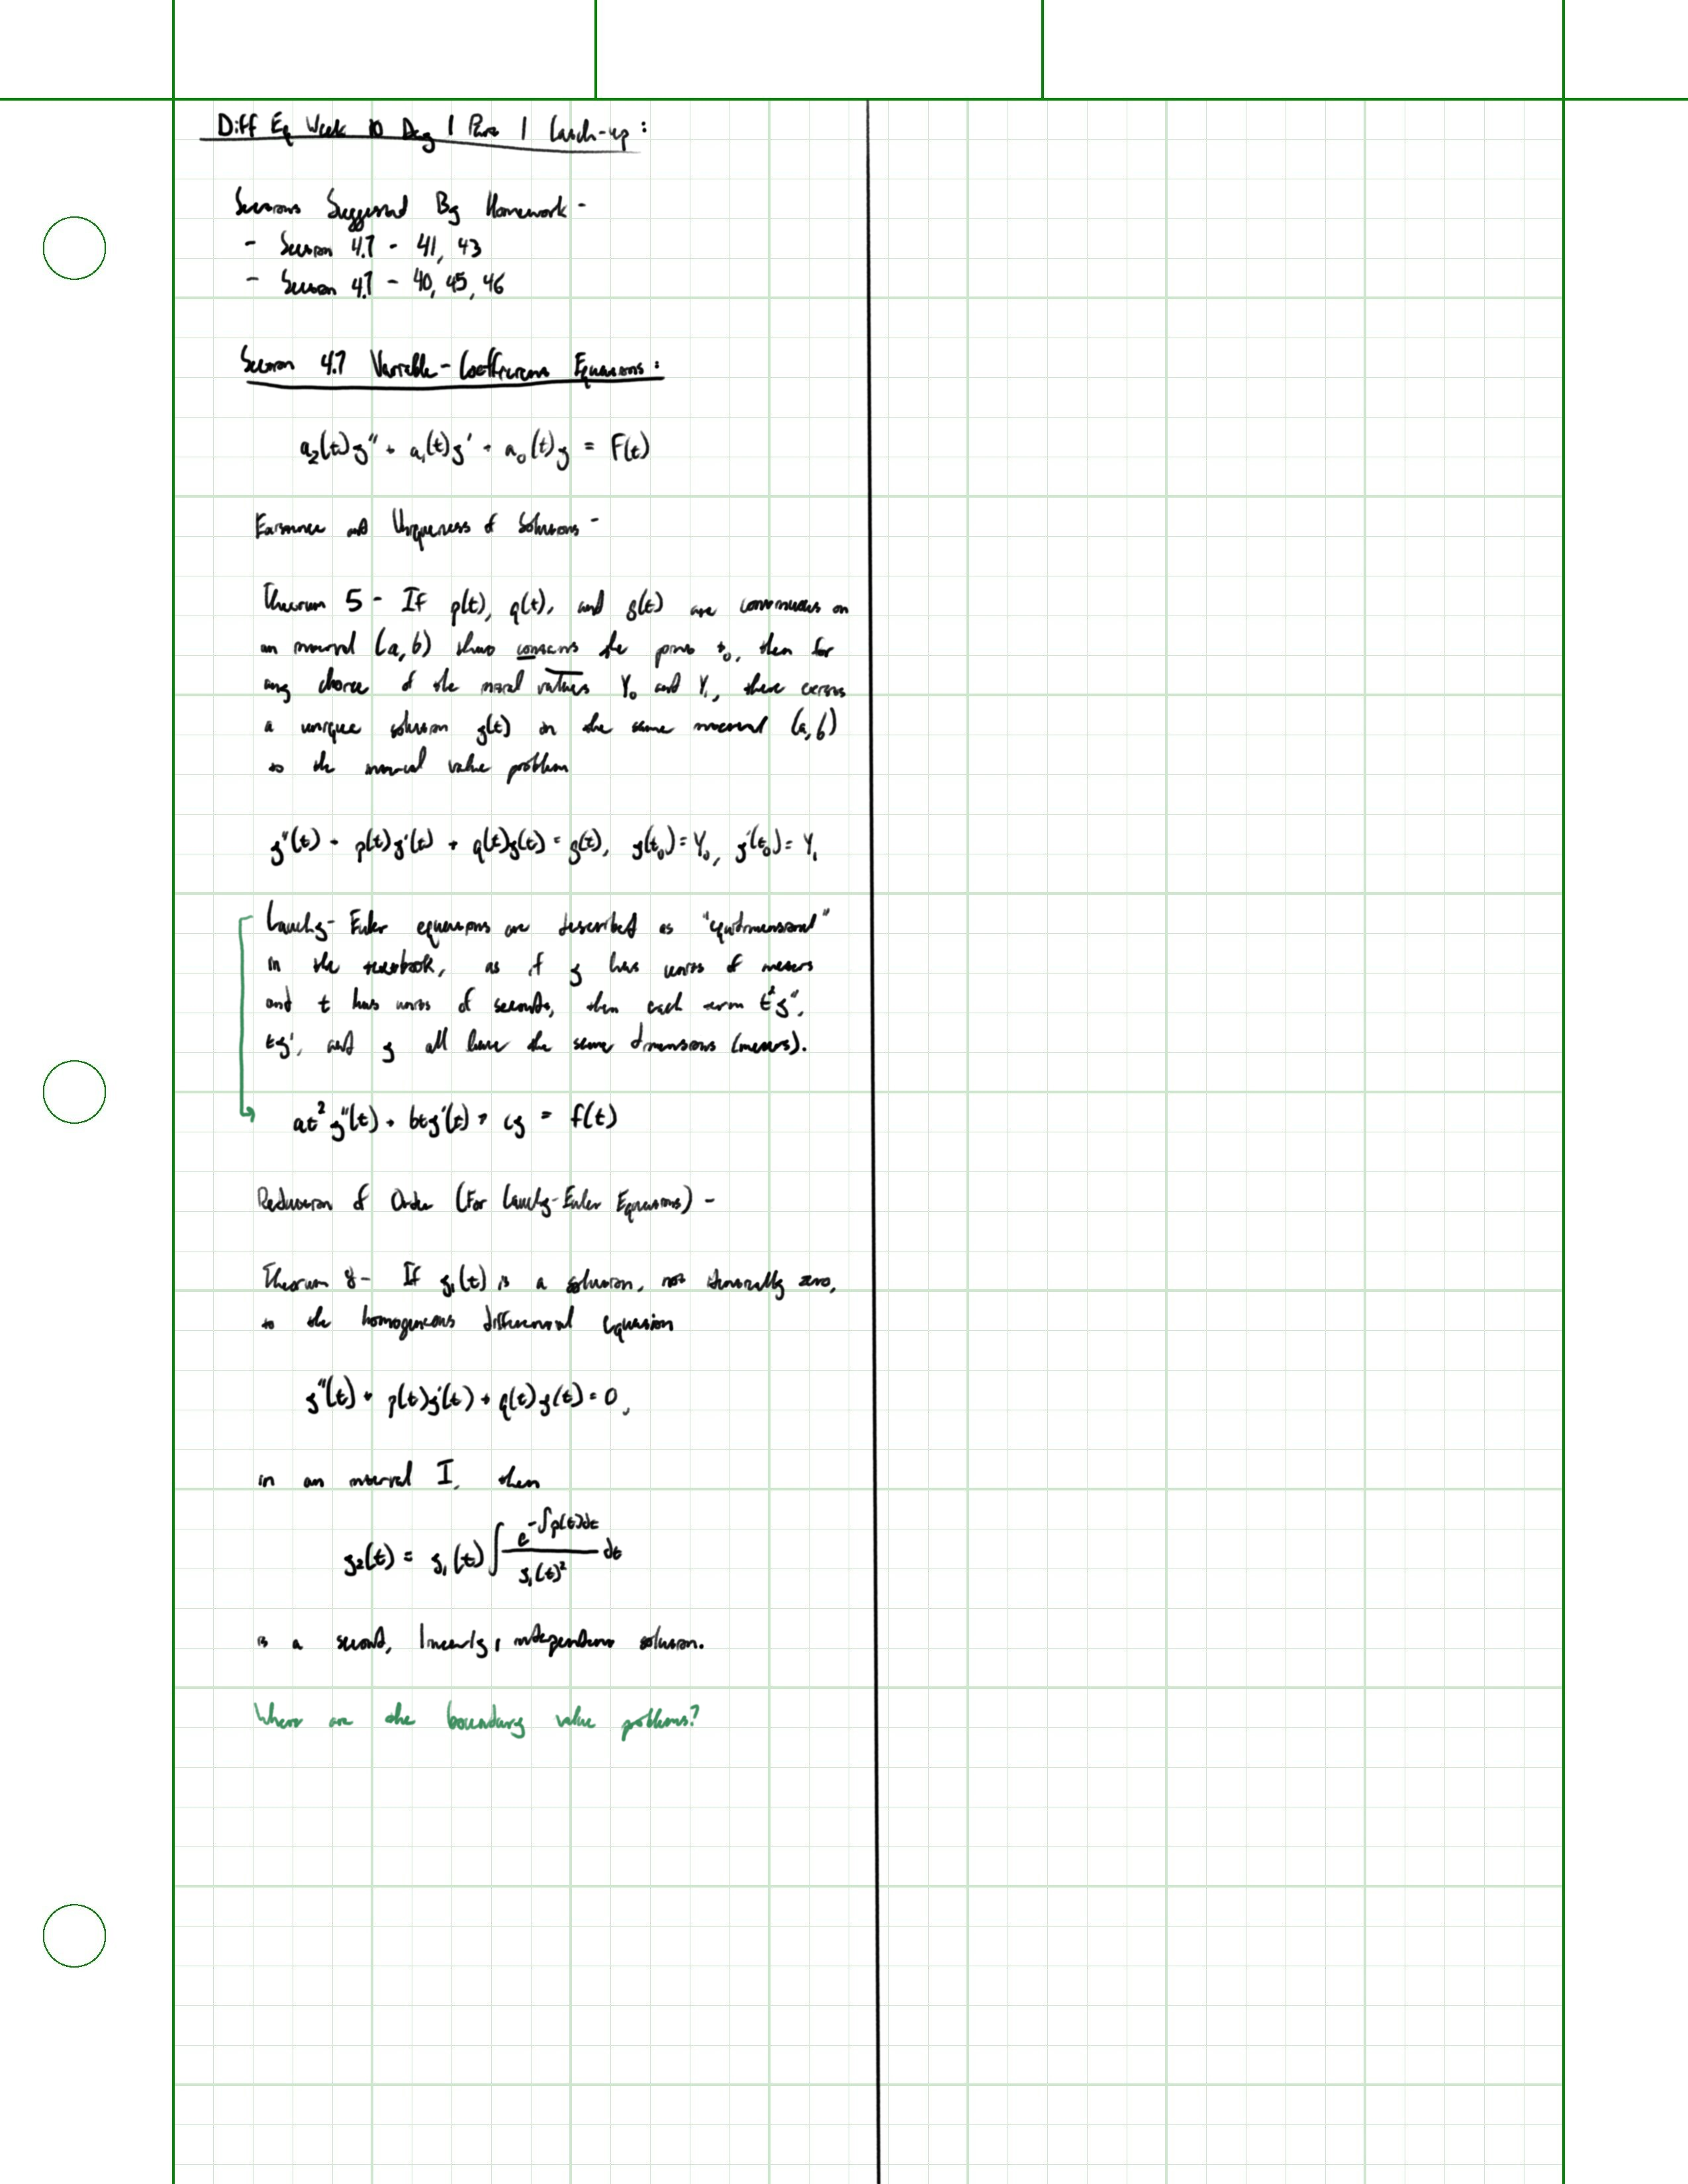 Diff Eq Week 10 Day 1 Part 1 Catch-up:
Sections Suggested By Homework -
- Section 4.7 - 41, 43
- Section 4.7 - 40, 45, 46
Section 4.7 Variable-Coefficient Equations:
a₂(t)y'' + a₁(t)y' + a₀(t)y = F(t)
Existence and Uniqueness of Solutions -
Theorem 5 - If p(t), q(t), and g(t) are continuous on
an interval (a, b) that contains the point t₀, then for
any choice of the initial values Y₀ and Y₁, there exists
a unique solution y(t) on the same interval (a, b)
to the initial value problem
y''(t) + p(t)y'(t) + q(t)y(t) = g(t), y(t₀) = Y₀, y'(t₀) = Y₁
Cauchy-Euler equations are described as "equidimensional"
in the textbook, as if y has units of meters
and t has units of seconds, then each term t²y'',
ty', and y all have the same dimensions (meters).
at²y''(t) + bty'(t) + cy = f(t)
Reduction of Order (For Cauchy-Euler Equations) -
Theorem 8 - If y₁(t) is a solution, not identically zero,
to the homogeneous differential equation
y''(t) + p(t)y'(t) + q(t)y(t) = 0,
in an interval I, then
y₂(t) = y₁(t) ∫ e^(-∫p(t)dt) / y₁(t)² dt
is a second, linearly independent solution.
Where are the boundary value problems?